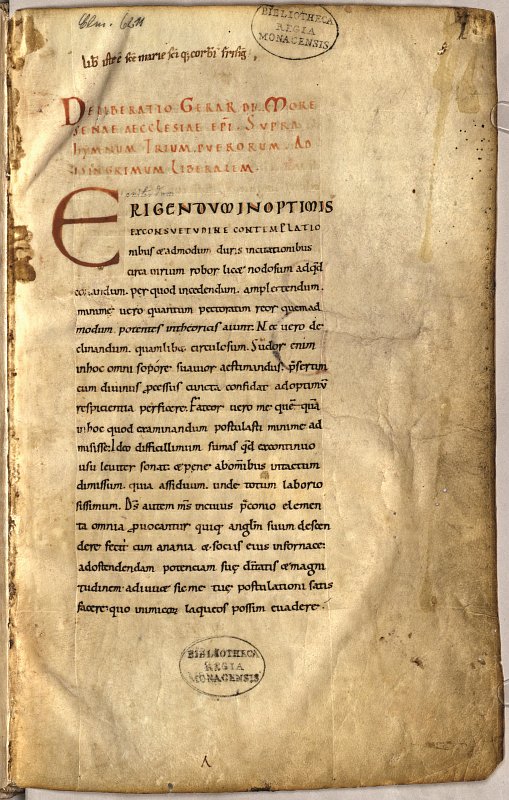 Clm. 6211
BIBLIOTHECA
REGIA
MONACENSIS
lib iste sce marie sci q; corbi frisig.
DELIBERATIO GERARDI. MORE
SENAE AECCLESIAE EPI. SUPRA
hYMNUM TRIUM PUERORUM. AD
ISINGRIMUM LIBERALEM.
ERIGENDUM IN OPTIMIS
EX CONSUETUDINE CONTEMPLATIO
nibus & admodum duris incitationibus
circa uirium robor lic& nodosum ad qd
eundum. per quod incedendum. amplectendum.
minime uero quantum pectoratim reor quemad
modum potentes in theoricis aiunt. Nec uero de
clinandum. quamlib& circulosum. Sudor enim
in hoc omni sopore suauior aestimandus. psertim
cum diuinus pcessus cuncta confidat ad optimu
respicientia perficere. Fateor uero me quę quā
in hoc quod examinandum postulasti minime ad
misisse. Ideo difficillimum sumas qd ex continuo
usu leuiter sonat. & pene ab omibus intactum
dimissum. quia assiduum. unde totum laborio
sissimum. Ds autem ms in cuius pconio elemen
ta omnia puocantur quiq; anglm suum descen
dere fecit cum anania & sociis eius in fornace:
ad ostendendam potenciam suę diuitatis & magni
tudinem adiuu& sic me tuę postulationi satis
facere quo inimicor laqueos possim euadere.
BIBLIOTHECA
REGIA
MONACENSIS